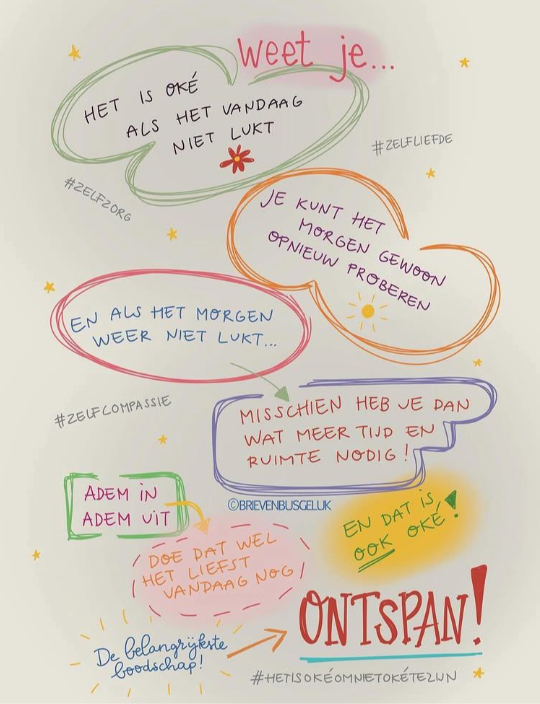 weet je...
HET IS OKÉ
ALS HET VANDAAG
NIET LUKT
#ZELFLIEFDE
#ZELFZORG
JE KUNT HET
MORGEN GEWOON
OPNIEUW PROBEREN
EN ALS HET MORGEN
WEER NIET LUKT...
#ZELFCOMPASSIE
MISSCHIEN HEB JE DAN
WAT MEER TIJD EN
RUIMTE NODIG!
ADEM IN
ADEM UIT
©BRIEVENBUSGELUK
EN DAT IS
OOK OKÉ!
DOE DAT WEL
HET LIEFST
VANDAAG NOG
De belangrijkste
boodschap!
ONTSPAN!
#HETISOKÉOMNIETOKÉTEZIJN